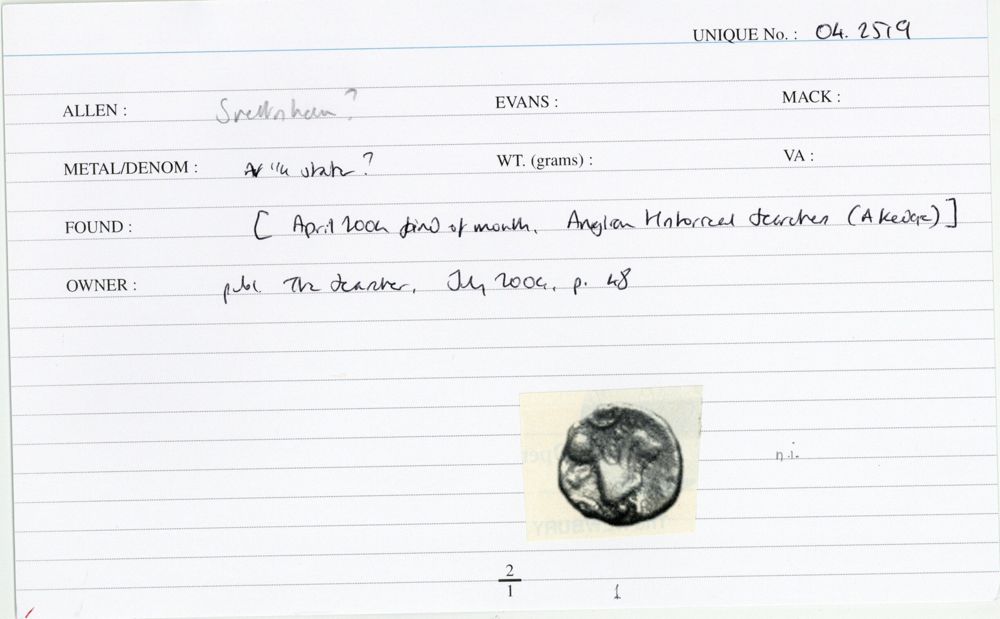 UNIQUE No. : 04. 2519
ALLEN : Snettisham? EVANS : MACK :
METAL/DENOM : AV 1/4 stater? WT. (grams) : VA :
FOUND : [ April 2004 find of month, Anglian Historical Searches (A Kedge) ]
OWNER : publ. The Searcher, July 2004, p. 48
n.i.
2
1 1